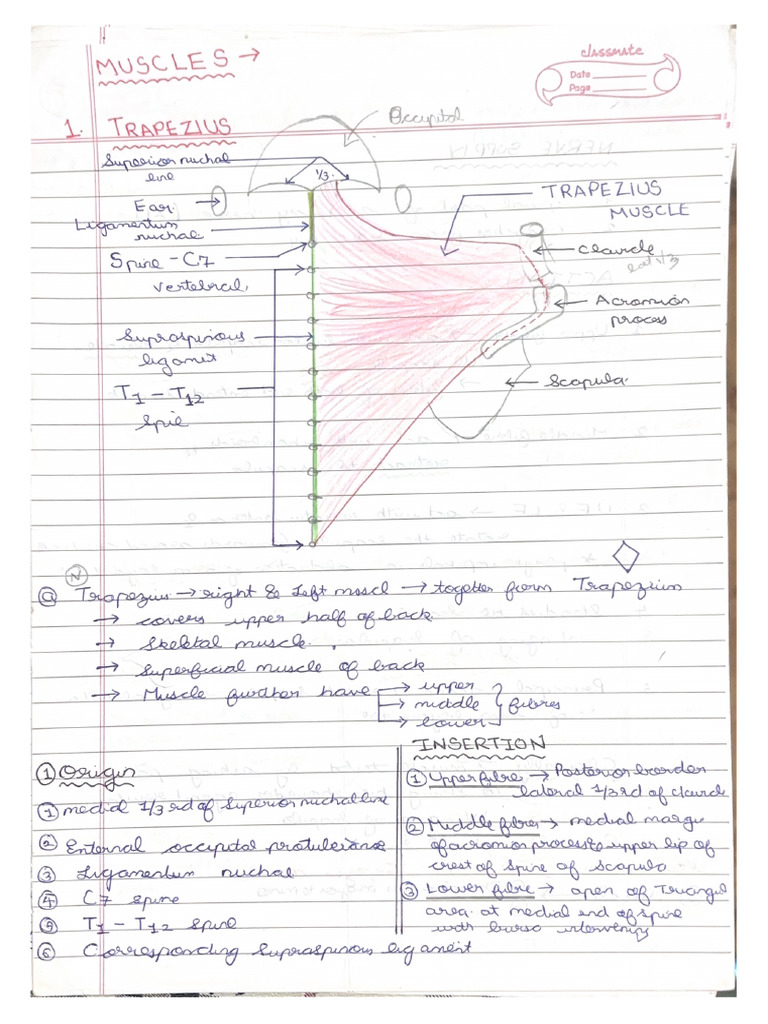 MUSCLES →
classmate
Date
Page
1. TRAPEZIUS
Occupital
Superior nuchal
line
1/3
Ear
TRAPEZIUS
MUSCLE
Ligamentum
nuchal
Clavicle
lat 1/3
Spine - C7
vertebral
Acromion
process
Supraspinous
ligamet
Scapula
T1 - T12
Spie
N
@ Trapezius → right & left muscl → together form Trapezium
→ covers upper half of back
→ Skeletal muscle.
→ Superficial muscle of back
→ Muscle further have → upper
→ middle fibres
→ lower
① Origin
① medial 1/3rd of Superior nuchal line
② External occupital protuberance
③ Ligamentum nuchal
④ C7 spine
⑤ T1 - T12 spine
⑥ Corresponding Supraspinous ligament
INSERTION
① Upper fibre → Posterior border
lateral 1/3rd of clavicle
② Middle fibre → medial margin
of acromion process & upper lip of
crest of Spine of Scapula
③ Lower fibre → apex of Triangul
area at medial end of spine
with bursa intervening